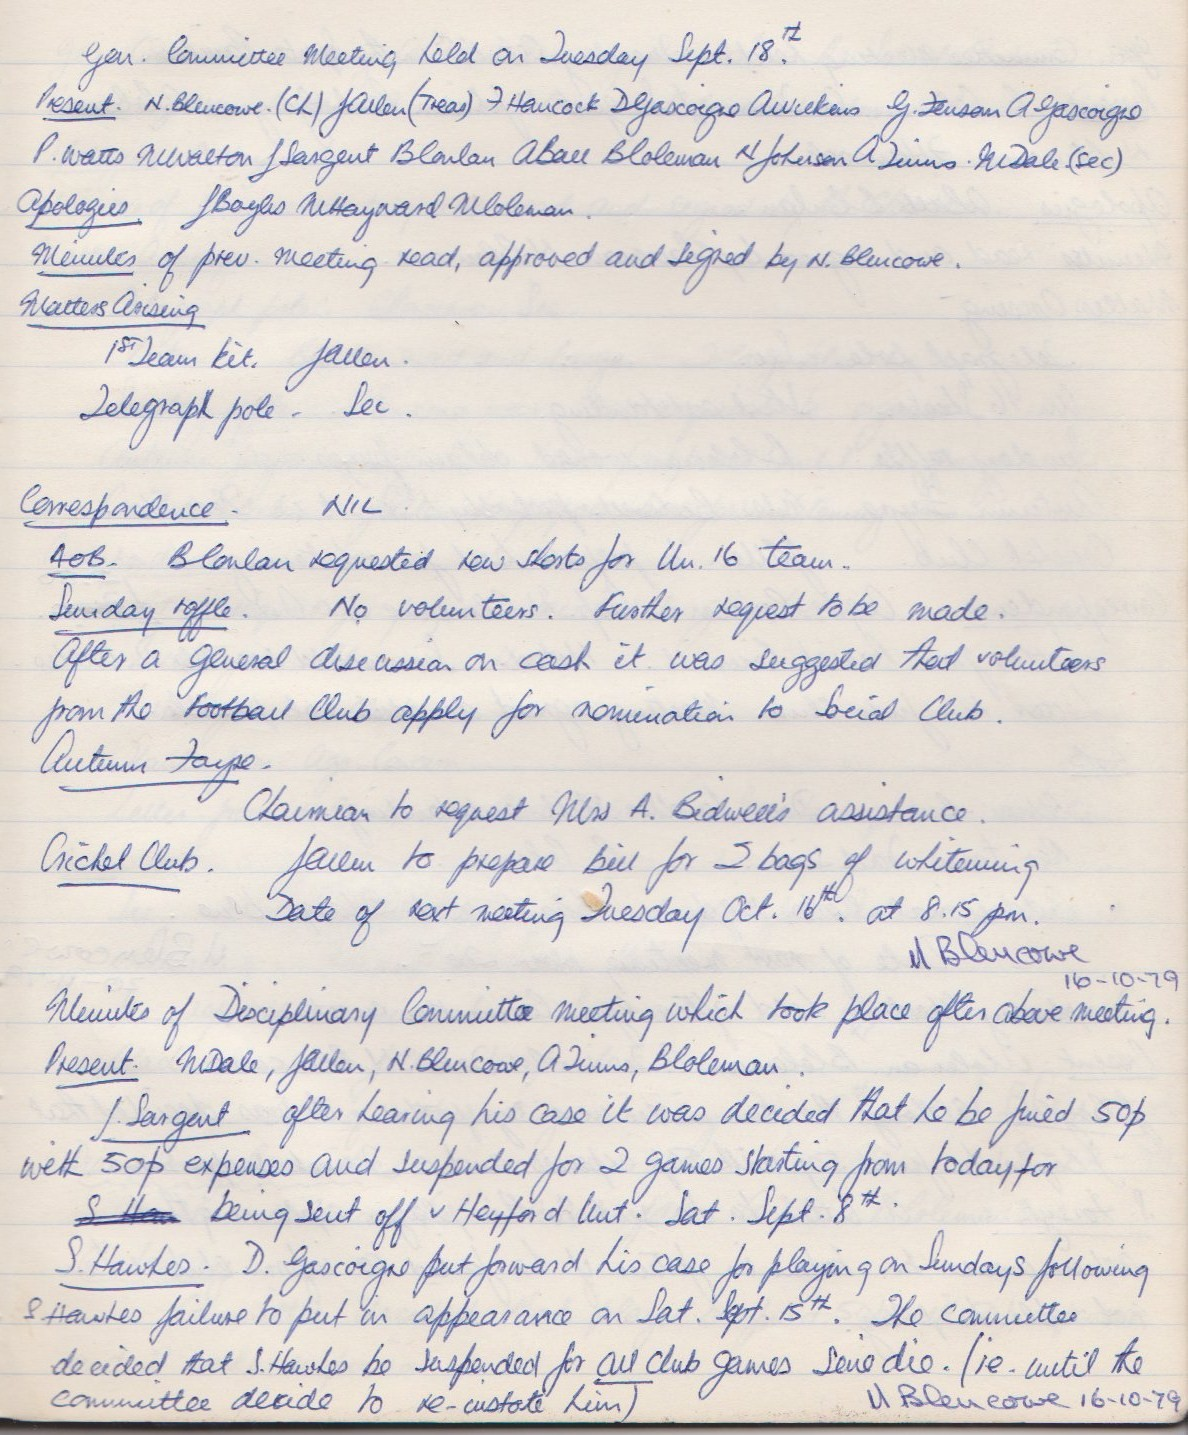 Gen. Committee Meeting held on Tuesday Sept. 18th.
Present. N. Blencowe. (Ch) J Allen (Treas) F Hancock D Gascoigne A Wilkins G. Fenson A Gascoigne
P. Watts M Walton J Sargent B Conlan A Ball B Coleman N Johnson A Timms. M Dale. (Sec)
Apologies J Boyles M Hayward M Coleman.
Minutes of prev. meeting read, approved and signed by N. Blencowe.
Matters Arising
1st Team kit. J Allen.
Telegraph pole - Sec.
Correspondence - NIL
AOB. B Conlan requested new shorts for Un. 16 team.
Sunday raffle. No volunteers. Further request to be made.
After a general discussion on cash it was suggested that volunteers
from the Football Club apply for nomination to Social Club.
Autumn Fayre.
Chairman to request Mrs A. Bidwell's assistance.
Cricket Club. J Allen to prepare bill for 2 bags of whitening
Date of next meeting Tuesday Oct. 16th. at 8.15 pm.
N Blencowe
16-10-79
Minutes of Disciplinary Committee meeting which took place after above meeting.
Present. M Dale, J Allen, N. Blencowe, A Timms, B Coleman.
J. Sargent after hearing his case it was decided that he be fined 50p
with 50p expenses and suspended for 2 games starting from today for
S Haw being sent off v Heyford Unt. Sat. Sept. 8th.
S. Hawkes. D. Gascoigne put forward his case for playing on Sundays following
S Hawkes failure to put in appearance on Sat. Sept. 15th. The committee
decided that S. Hawkes be suspended for all club games Sine die. (ie. until the
committee decide to re-instate him) N Blencowe 16-10-79